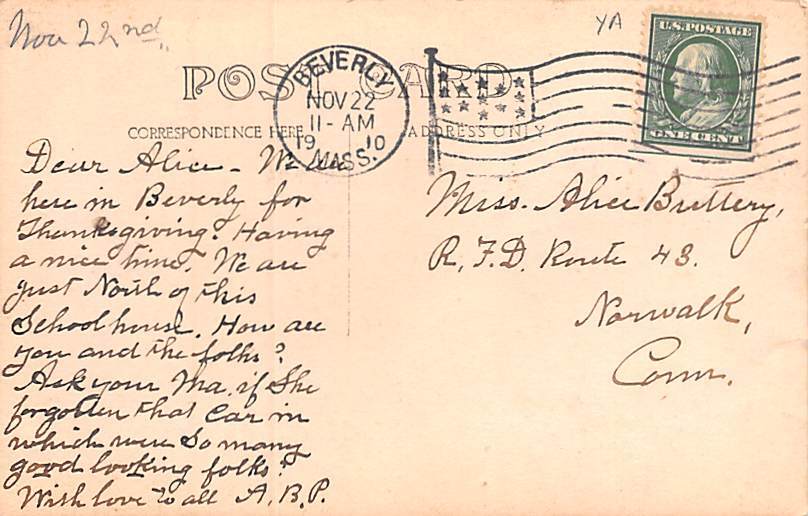 Nov 22nd
YA
U.S. POSTAGE
ONE CENT
POST CARD
BEVERLY
NOV 22
11-AM
1910
MASS.
CORRESPONDENCE HERE
ADDRESS ONLY
Dear Alice – We
here in Beverly for
Thanksgiving. Having
a nice time. We are
just North of this
School house. How are
you and the folks?
Ask your Ma. if She
forgotten that Car in
which were So many
good looking folks?
With love to all A.B.P.
Miss. Alice Buttery,
R.F.D. Route 43.
Norwalk,
Conn.